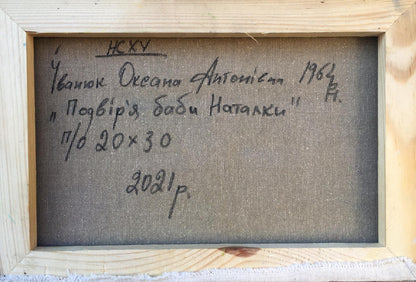 НСХУ
Іванюк Оксана Антонівна 1964
н.
"Подвір'я баби Наталки"
п/о 20х30
2021р.